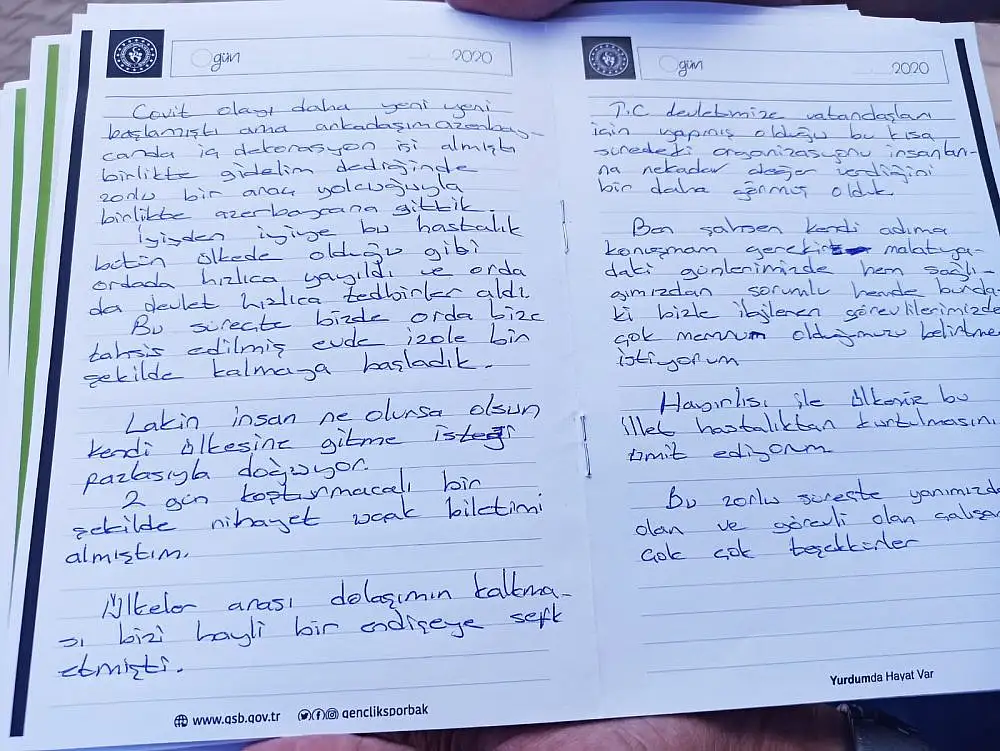 gün
2020
Covit olayı daha yeni yeni
başlamıştı ama arkadaşım azerbay-
canda iç dekorasyon işi almıştı
birlikte gidelim dediğinde
zorlu bir araç yolcuğuyla
birlikte azerbaycana gittik.
İyiden iyiye bu hastalık
bütün ülkede olduğu gibi
ordada hızlıca yayıldı ve orda
da devlet hızlıca tedbirler aldı
Bu süreçte bizde orda bize
tahsis edilmiş evde izole bin
şekilde kalmaya başladık.
Lakin insan ne olursa olsun
kendi ülkesine gitme isteği
pazlasıyla doğuyor.
2 gün koşturmacalı bir
şekilde nihayet uçak biletimi
almıştım.
Ülkeler arası dolaşımın kalkma-
sı bizi hayli bir endişeye seft
etmişti.
www.gsb.gov.tr gencliksporbak
gün
2020
T.C devletimize vatandaşları
için yapmış olduğu bu kısa
süredeki organizasyonu insanları-
na nekadar değer verdiğini
bir daha görmüş olduk.
Ben şahsen kendi adıma
konuşmam gerekirse malatya-
daki günlerimizde hem sağlı-
ğımızdan sorumlu hemde burda-
ki bizle ilgilenen görevlilerimizde
çok memnum olduğumuzu belirtme
istiyorum
Hayırlısı ile ülkemiz bu
illet hastalıktan kurtulmasını
ümit ediyorum
Bu zorlu süreçte yanımızda
olan ve görevli olan çalışan
çok çok teşekkürler
Yurdumda Hayat Var